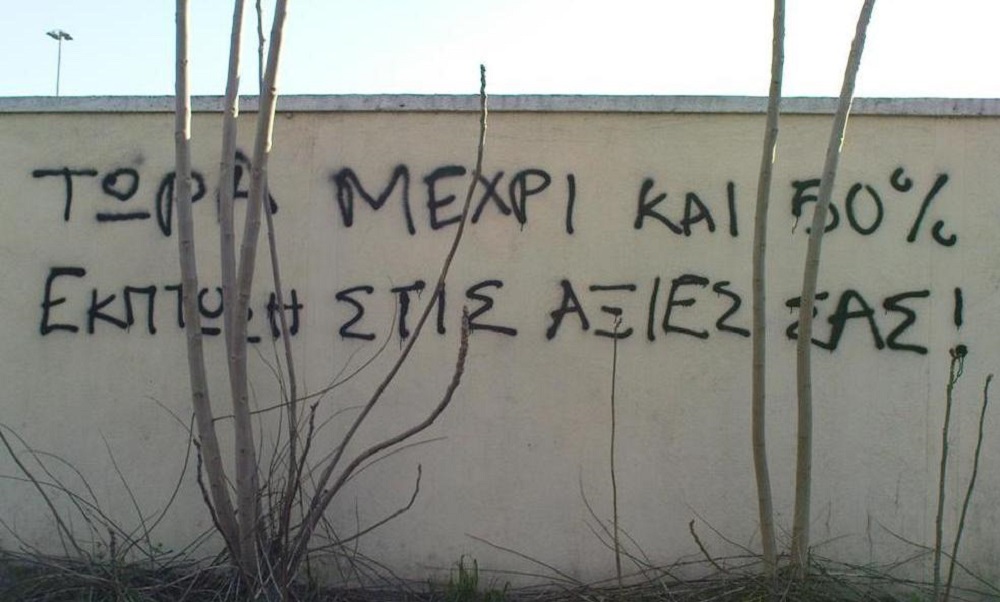 ΤΩΡΑ ΜΕΧΡΙ ΚΑΙ 50%
ΕΚΠΤΩΣΗ ΣΤΙΣ ΑΞΙΕΣ ΣΑΣ!